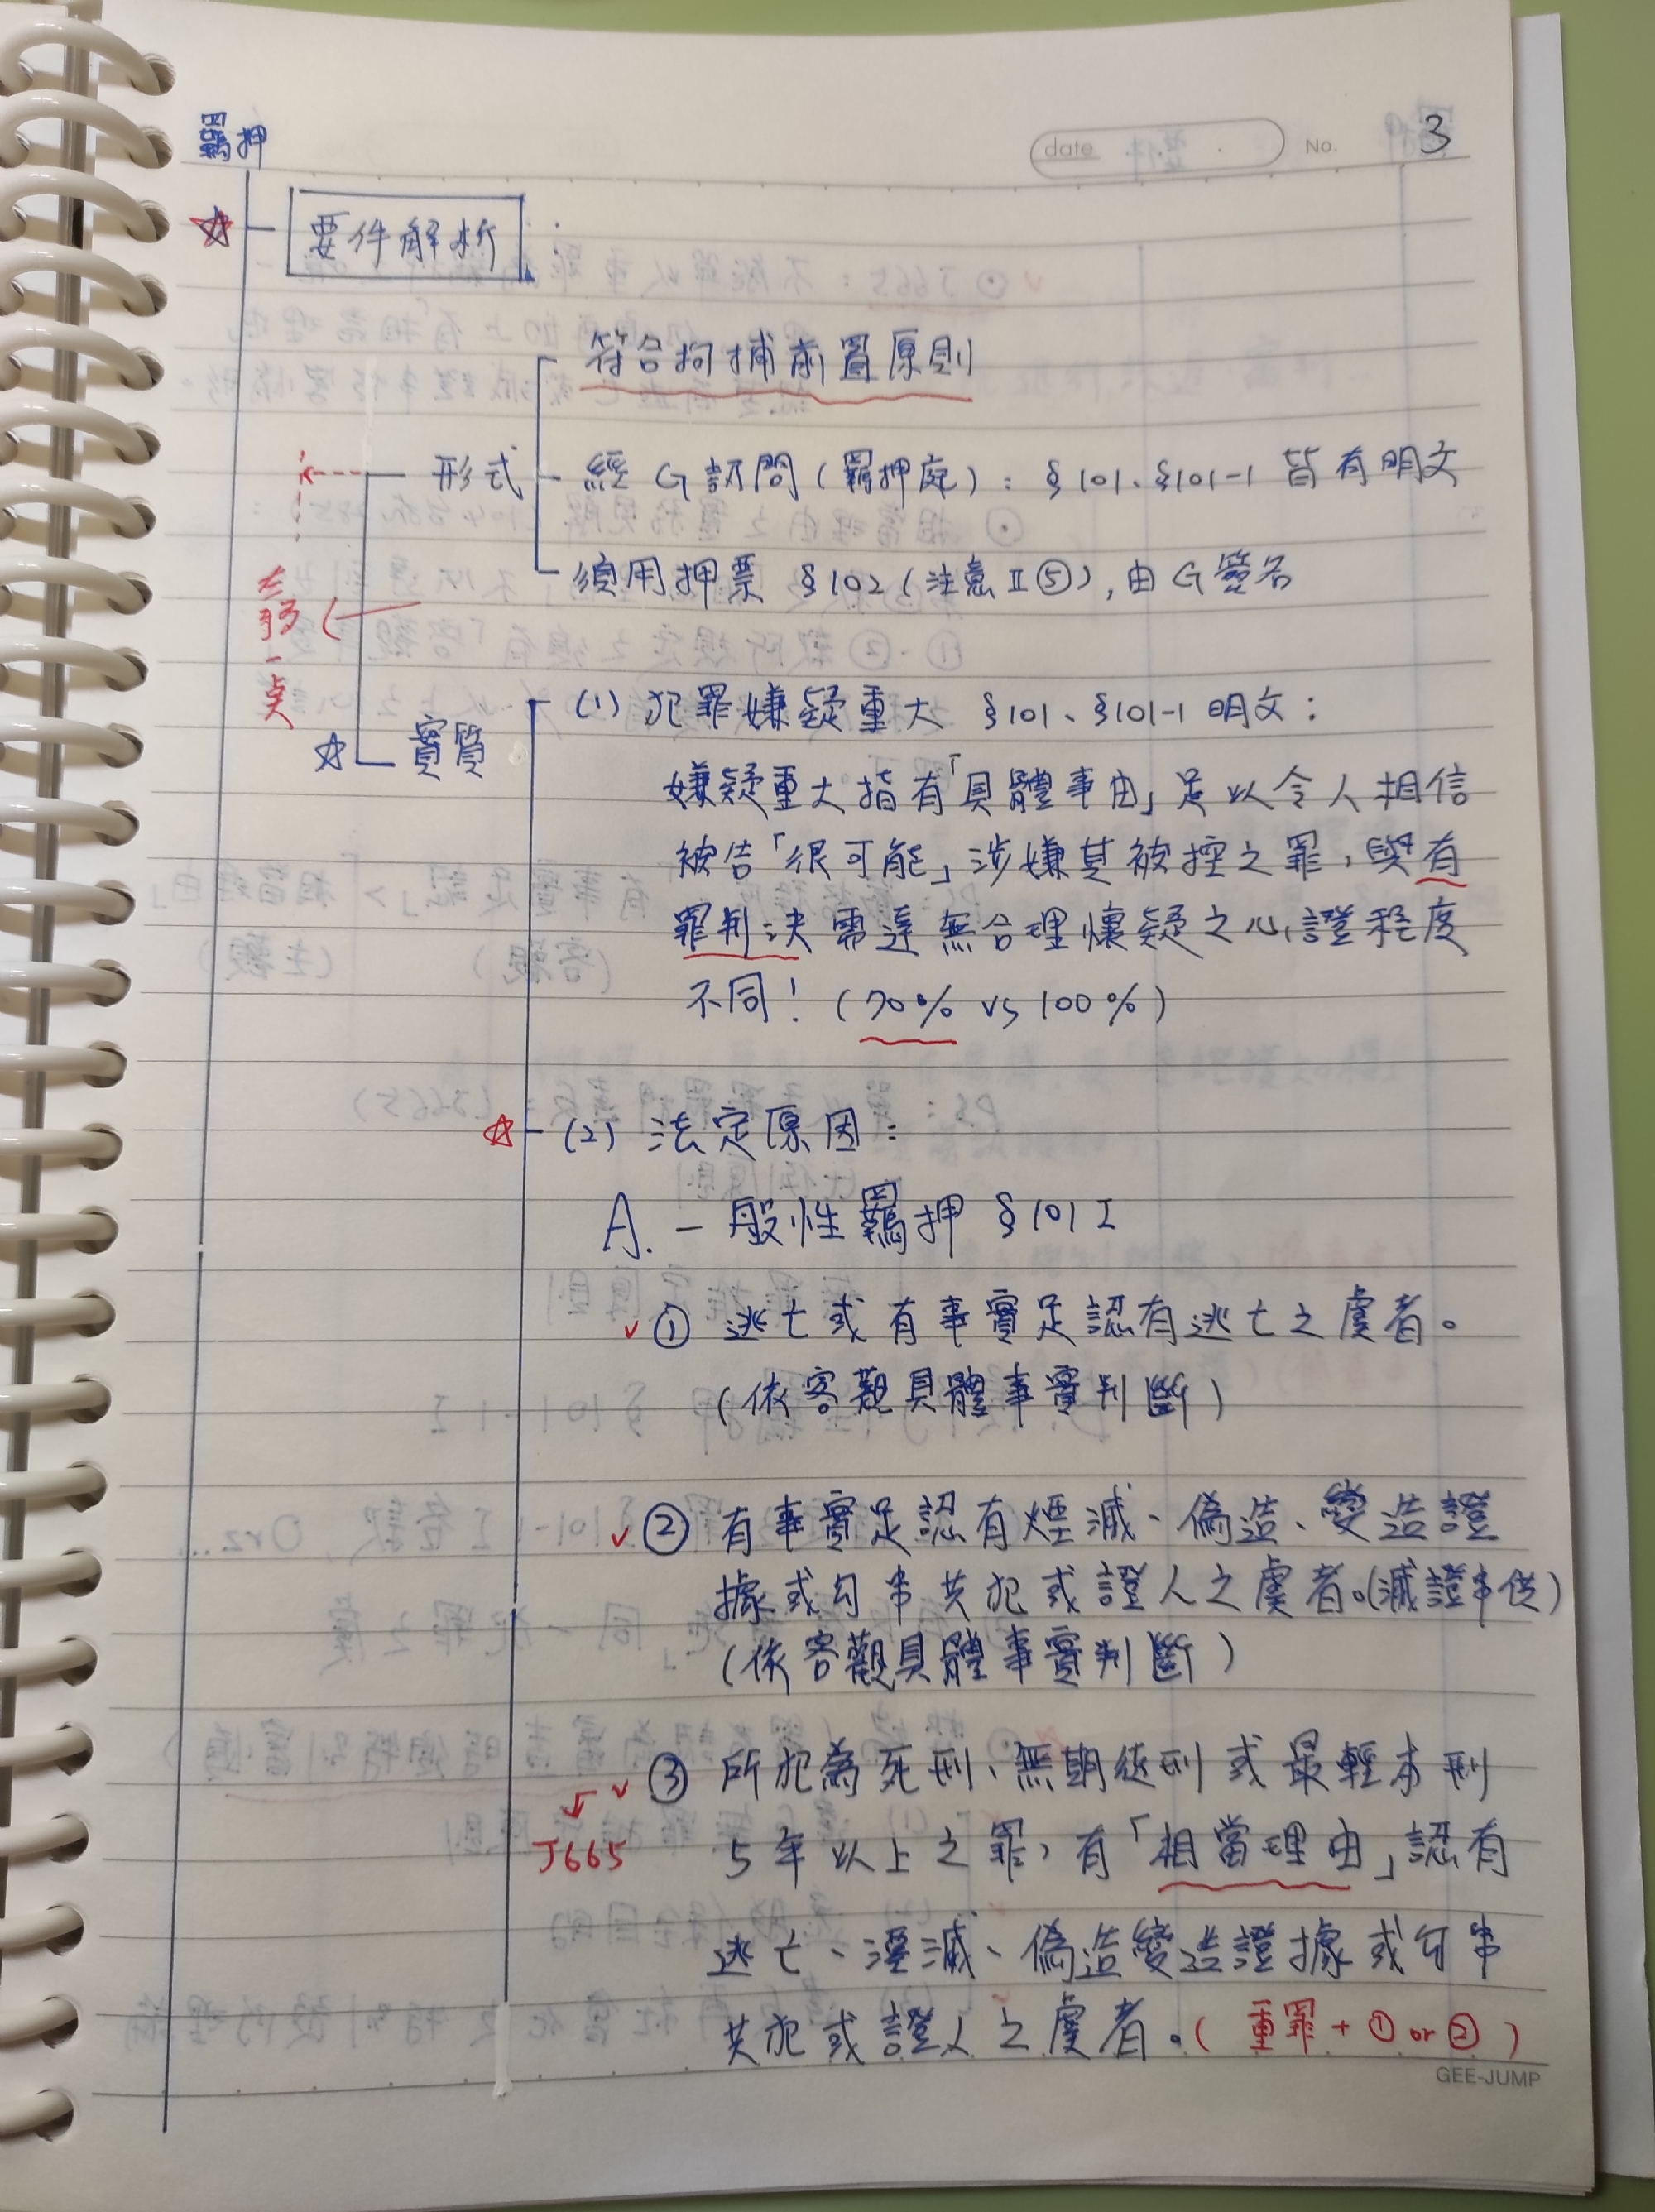 羈押
date
No. 3
要件解析:
符合拘捕前置原則
形式
經G訊問(羈押庭): §101、§101-1 皆有明文
須用押票 §102(注意Ⅱ⑤),由G簽名
實質
(1) 犯罪嫌疑重大 §101、§101-1 明文:
嫌疑重大指有「具體事由」足以令人相信
被告「很可能」涉嫌其被控之罪,與有
罪判決需達無合理懷疑之心證程度
不同! (70% vs 100%)
(2) 法定原因:
A. 一般性羈押 §101 I
① 逃亡或有事實足認有逃亡之虞者。
(依客觀具體事實判斷)
② 有事實足認有煙滅、偽造、變造證
據或勾串共犯或證人之虞者。(滅證串供)
(依客觀具體事實判斷)
③ 所犯為死刑、無期徒刑或最輕本刑
J665
5年以上之罪,有「相當理由」認有
逃亡、湮滅、偽造變造證據或勾串
共犯或證人之虞者。(重罪+①or②)
GEE-JUMP